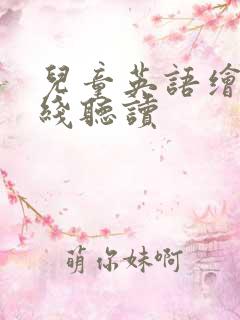 兒童英語繪
綫聽讀
萌你妹啊